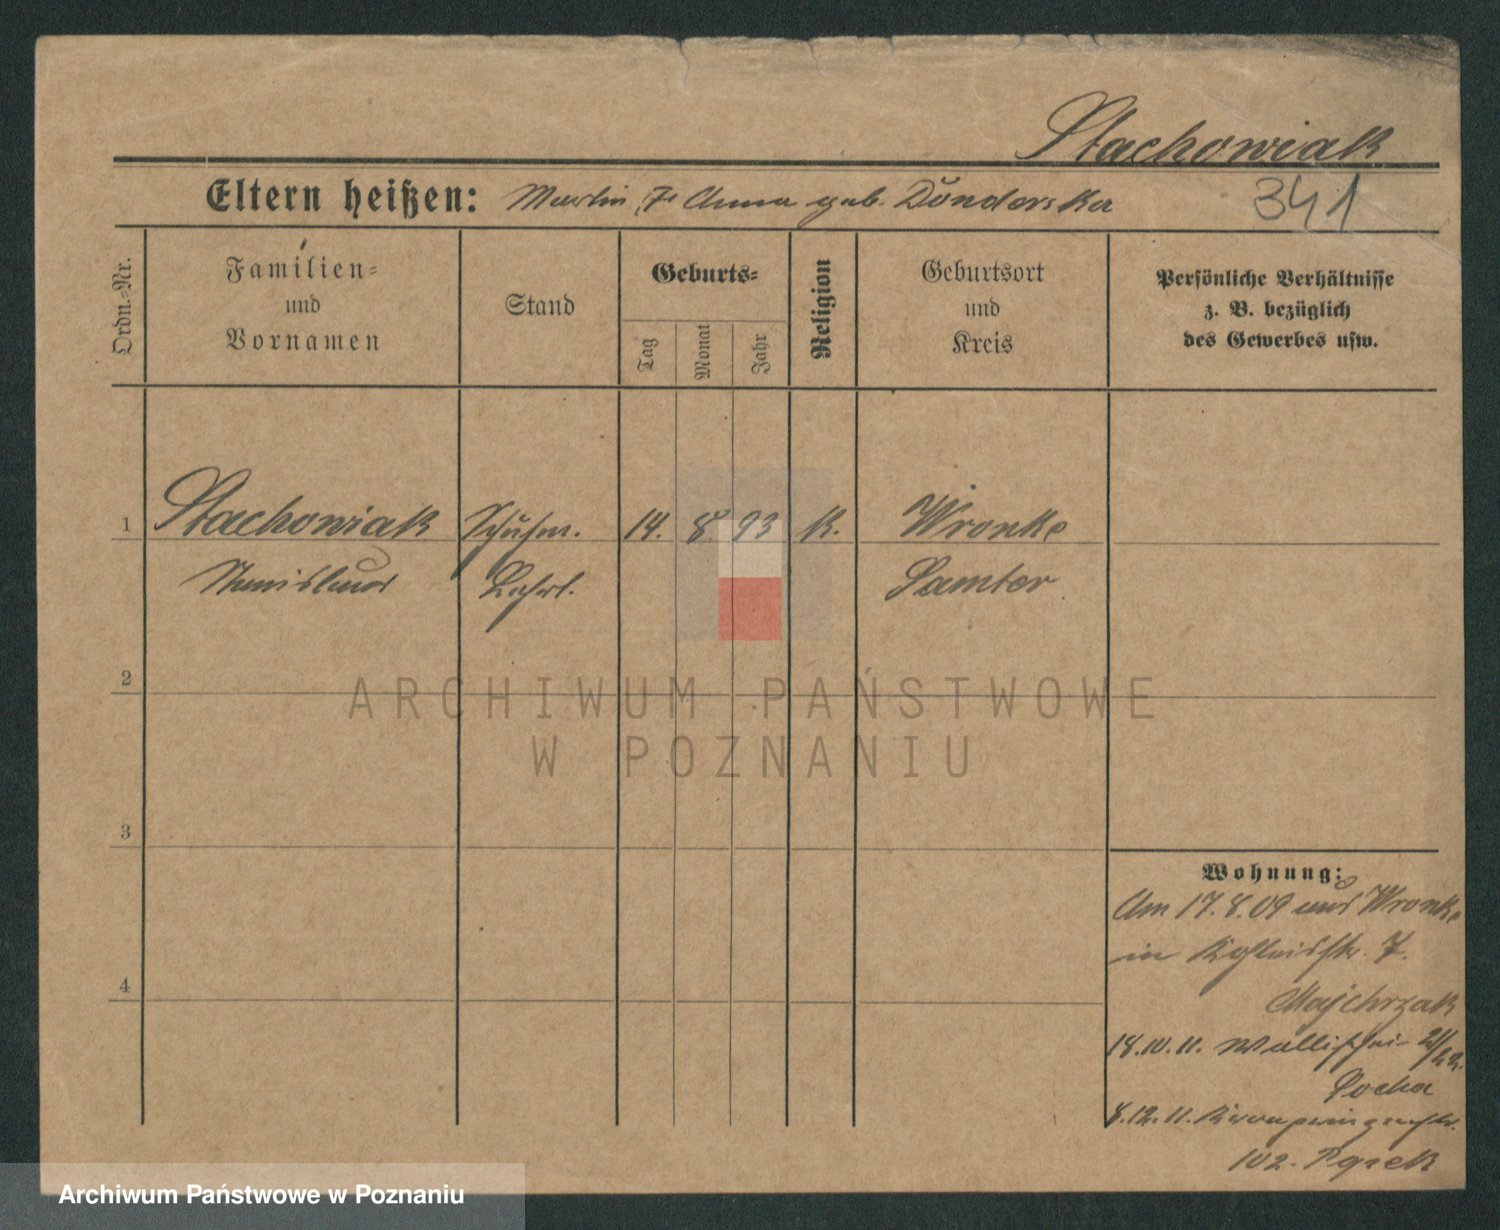 Stachowiak
Eltern heißen: Martin, Anna geb. Dondorska
341
Ordn.-Nr.
Familien-
und
Vornamen
Stand
Geburts-
Tag
Monat
Jahr
Religion
Geburtsort
und
Kreis
Persönliche Verhältnisse
z. B. bezüglich
des Gewerbes usw.
1 Stachowiak Schuhm. 14. 8. 93 K. Wronke
Stanislaus Lehrl. Samter
2
3
4
ARCHIWUM PAŃSTWOWE
W POZNANIU
Wohnung:
Am 17.8.09 aus Wronke
in 7.
Majchrzak
18.10.11. Wallischei
Socha
8.12.11. Kronprinzenstr.
102.
Archiwum Państwowe w Poznaniu